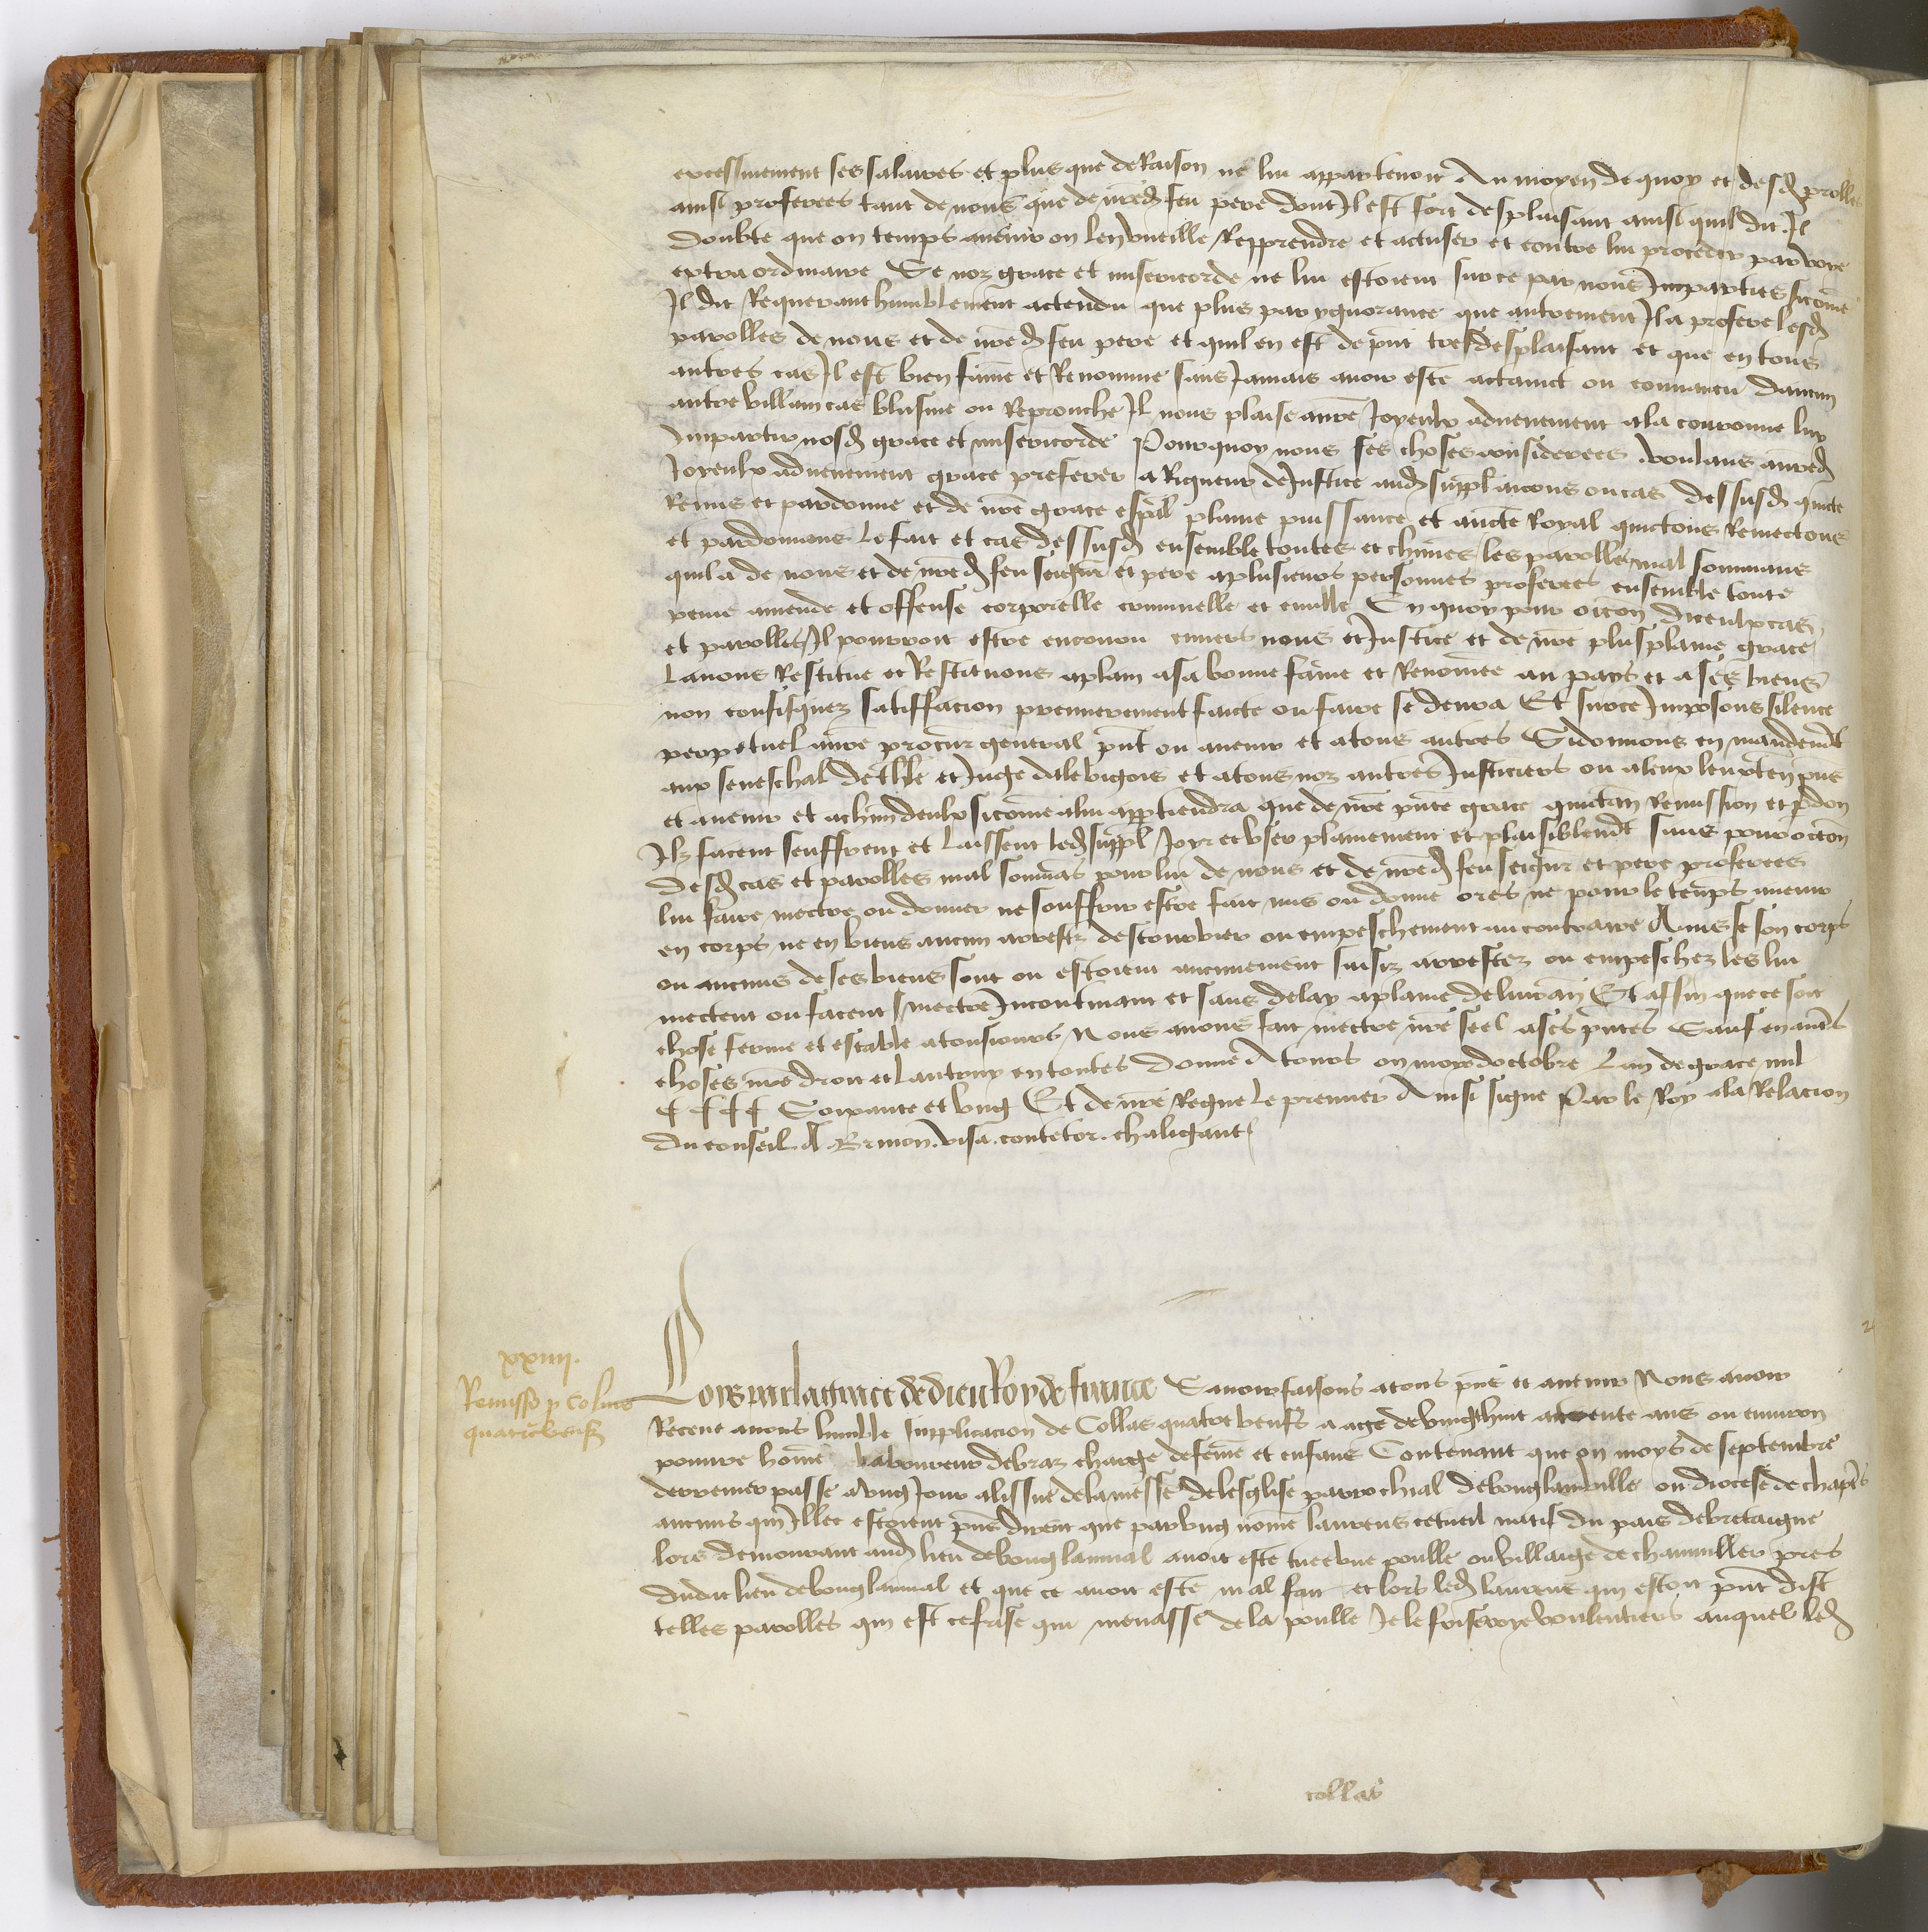 excessivement ses salaires et plus que de Raison ne lui appartenoit Au moyen de quoy et desd parolles
ainsi proferees tant de nous que de nred feu pere dont Il est fort desplaisant ainsi quil dit. Il
doubte que on temps avenir on len vueille Repprendre et actuser et contre lui proceder par voye
extraordinaire Se noz grace et misericorde ne lui estoient surce par nous Imparties sicome
Il dit Requerant humblement actendu que plus par ygnorance que autrement Il a profere lesd
parolles de nous et de nred feu pere et quil en est de pnt tresdesplaisant et que en tous
autres cas Il est bien fame et Renomme sans Jamais avoir este actainct ou convaincu daucun
autre villain cas blasme ou Reprouche Il nous plaise a nre Joyeulx advenement a la couronne luy
Impartir nosd grace et misericorde Pourquoy nous ses choses considerees voulans a nred
Joyeulx advenement grace preferer a Rigueur de Justice aud suppliant avons ou cas dessusd quicte
Remis et pardonne et de nre grace espal plaine puissance et aucte Royal quictons Remectons
et pardonnons le fait et cas dessusd ensemble toutes et chunes les parolles mal sonnans
quil a de nous et de nred feu seigneur et pere a plusieurs personnes proferees ensemble toute
peine amende et offense corporelle criminelle et civille En quoy pour occon diceulx cas
et parolles Il pourroit estre encouru envers nous et Justice et de nre plus plaine grace
lavons Restitue et Restituons a plain a sa bonne fame et Renomee au pays et a ses biens
non confisquez satiffacion premierement faicte ou faire se devra Et surce Imposons silence
perpetuel a nre procur general pnt ou avenir et a tous autres Sidonnons en mandemt
aux seneschal de thle et Juge dalebigois et a tous noz autres Justiciers ou a leurs lieuxten pns
et avenir et a chun deulx sicome a lui apptiendra que de nre pnte grace quictan Remission et pdon
Ilz facent seuffrent et laissent led suppl Joyr et user plainement et plaisiblemt sans pour occon
desd cas et parolles mal sonnas pour lui de nous et de nred feu seigneur et pere proferees
lui faire mectre ou donner ne souffrir estre fait mis ou donne ores ne pour le temps avenir
en corps ne en biens aucun arrest destourbier ou empeschement au contraire Ains se son corps
ou aucuns de ses biens sont ou estoient aucunement saisiz arrestez ou empeschez les lui
mectent ou facent mectre Incontinant et sans delay a plaine delivran Et affin que ce soit
chose ferme et estable a tousiours Nous avons fait mectre nre seel a ses pntes Sauf en autres
choses nre droit et lautruy en toutes Donne A tours ou moys doctobre Lan de grace mil
CCCC Soixante et ung Et de nre Regne le premier Ainsi signe Par le Roy a la Relacion
du conseil. A Brinon. visa. contetor. chaligant
xxiiii.
Remissio p Colino
quatrebeufs
Loys par la grace de dieu Roy de france Savoir faisons a tous pns et avenir Nous avoir
Receue avons humble supplicacion de Collas quatrebeufs aage de vingt huit a trente ans ou environ
pouvre home laboureur de braz charge de feme et enfans Contenant que ou moys de septembre
derrenier passe a ung Jour a lissue de la messe de lesglise parrochial de bouglainville ou diocese de chartres
aucuns qui Illec estoient pns dirent que par ung nome laurens natif du pais de bretaigne
lors demourant aud lieu de bouglainval avoit este tuee une poulle ou villaige de chanviller pres
dudit lieu de bouglainval et que ce avoit este mal fait et lors led laurens qui estoit pnt dist
telles parolles qui est ce qui menasse de la poulle Je le voulentiers auquel led
collas